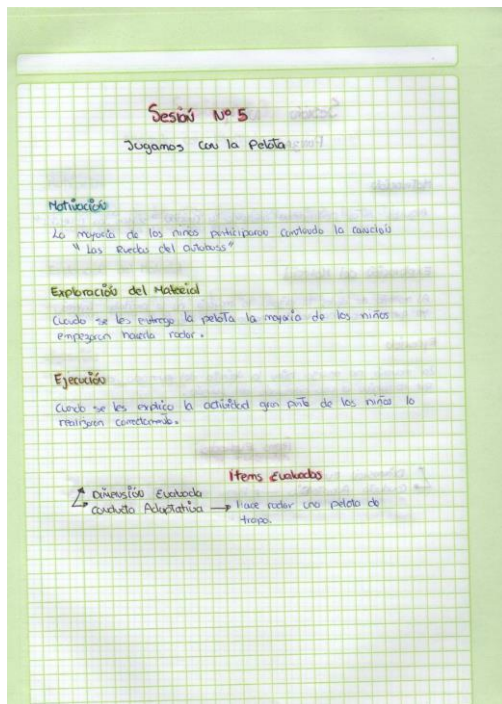 Sesión Nº 5
Jugamos con la Pelota
Motivación
La mayoria de los niños participaron cantando la canción
" Las Ruedas del autobuss"
Exploración del Material
Cuando se les entrego la pelota la mayoria de los niños
empezaron hacerla rodar.
Ejecución
Cuando se les explico la actividad gran parte de los niños lo
realizaron correctamente.
Items Evaluados
Dimensión Evaluada
Conducta Adaptativa → Hace rodar una pelota de
trapo.